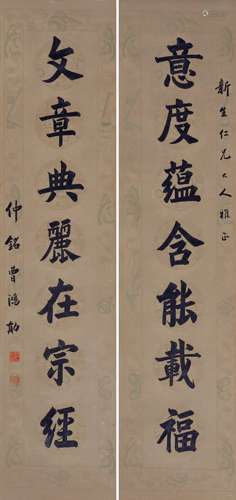 新生仁兄大人雅正
意度蘊含能載福
文章典麗在宗經
仲銘曹鴻勛